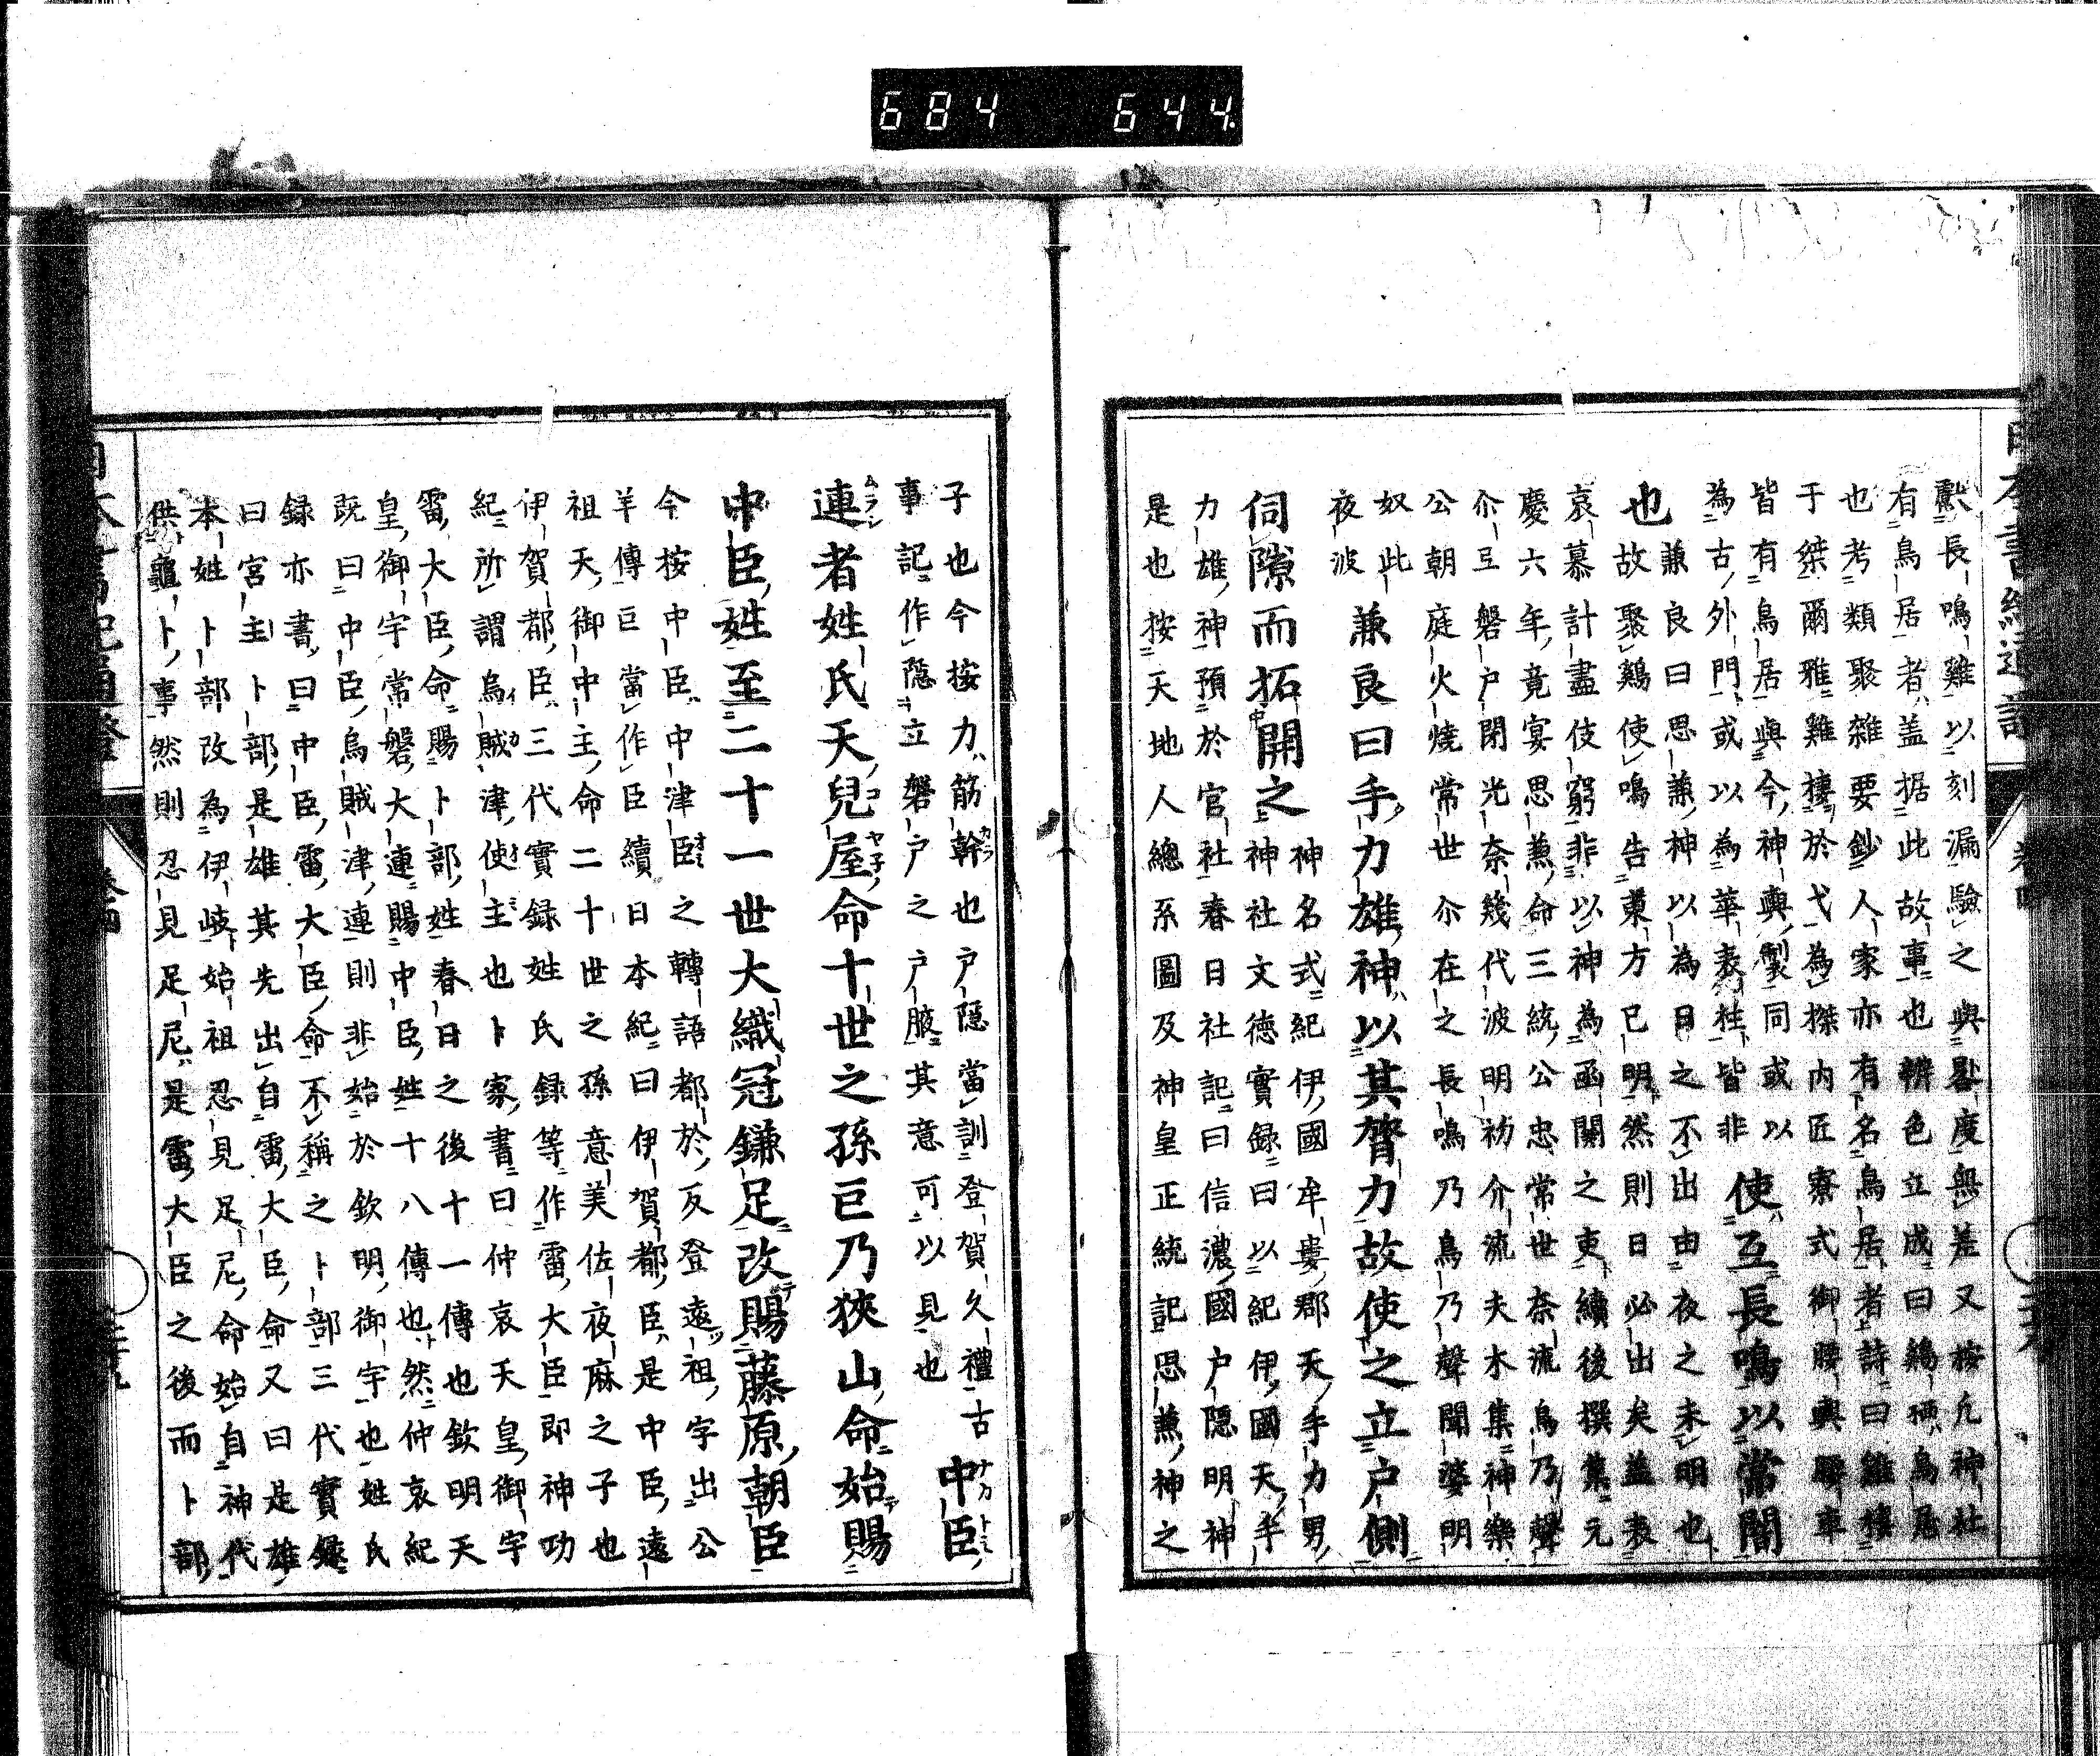 684 644
獻長鳴雞以刻漏驗之與晷度無差又按凡神社
有鳥居者盖据此故事也辨色立成曰鷄栖鳥居
也考類聚雜要鈔人家亦有名鳥居者詩曰雞棲
于桀爾雅雞棲於弋為榤内匠寮式御腰輿腰車
皆有鳥居與今神輿製同或以
為古外門或以為華表柱皆非使互長鳴以常闇
兼良曰思兼神以為日之不出由夜之未明也
也故聚鷄使鳴告東方已明然則日必出矣盖表
哀慕計盡伎窮非以神為函關之吏續後撰集元
慶六年竟宴思兼命三統公忠常世奈流鳥乃聲
尒㆓磐戸閉光奈幾代波明初介流夫木集神樂
公朝庭火燒常世尒在之長鳴乃鳥乃聲聞婆明
奴此
夜波兼良曰手力雄神以其膂力故使之立戸側
伺隙而拓開之神名式紀伊國牟婁郡天手力男
神社文德實録曰以紀伊國天手
力雄神預於官社春日社記曰信濃國戸隠明神
是也按天地人總系圖及神皇正統記思兼神之
子也今按力筋幹也戸隠當訓登賀久禮古
事記作隠立磐戸之戸腋其意可以見也中臣
連者姓氏天兒屋命十世之孫巨乃狹山命始賜
中臣姓至二十一世大織冠鎌足改賜藤原朝臣
今按中臣中津臣之轉語都於反登遠祖字出公
羊傳巨當作臣續日本紀曰伊賀都臣是中臣遠
祖天御中主命二十世之孫意美佐夜麻之子也
伊賀都臣三代實録姓氏録等作雷大臣即神功
紀所謂烏賊津使主也卜家書曰仲哀天皇御宇
雷大臣命賜卜部姓春日之後十一傳也欽明天
皇御宇常磐大連賜中臣姓十八傳也然仲哀紀
既曰中臣烏賊津連則非始於欽明御宇也姓氏
録亦書曰中臣雷大臣命不稱之卜部三代實録
曰宮主卜部是雄其先出自雷大臣命又曰是雄
本姓卜部改為伊岐始祖忍見足尼命始自神代
供龜卜事然則忍見足尼是雷大臣之後而卜部